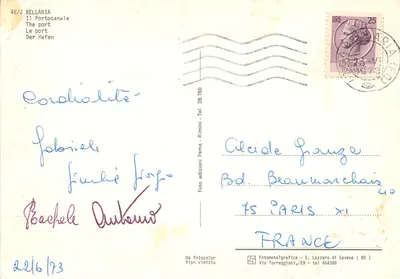 46/J BELLARIA
Il Portocanale
The port
Le port
Der Hafen
25
Cordialité
Gabriele
Giulié Giorgio
Rachele Antonio
22/6/73
Foto edizioni Parma - Rimini - Tel 28.760
Alcide
Bd. Beaumarchais
75 PARIS XI
FRANCE
Da fotocolor
Ripr. vietata
Fotometalgrafica - S. Lazzaro di Savena (BO)
Via Torreggiani, - tel 464306